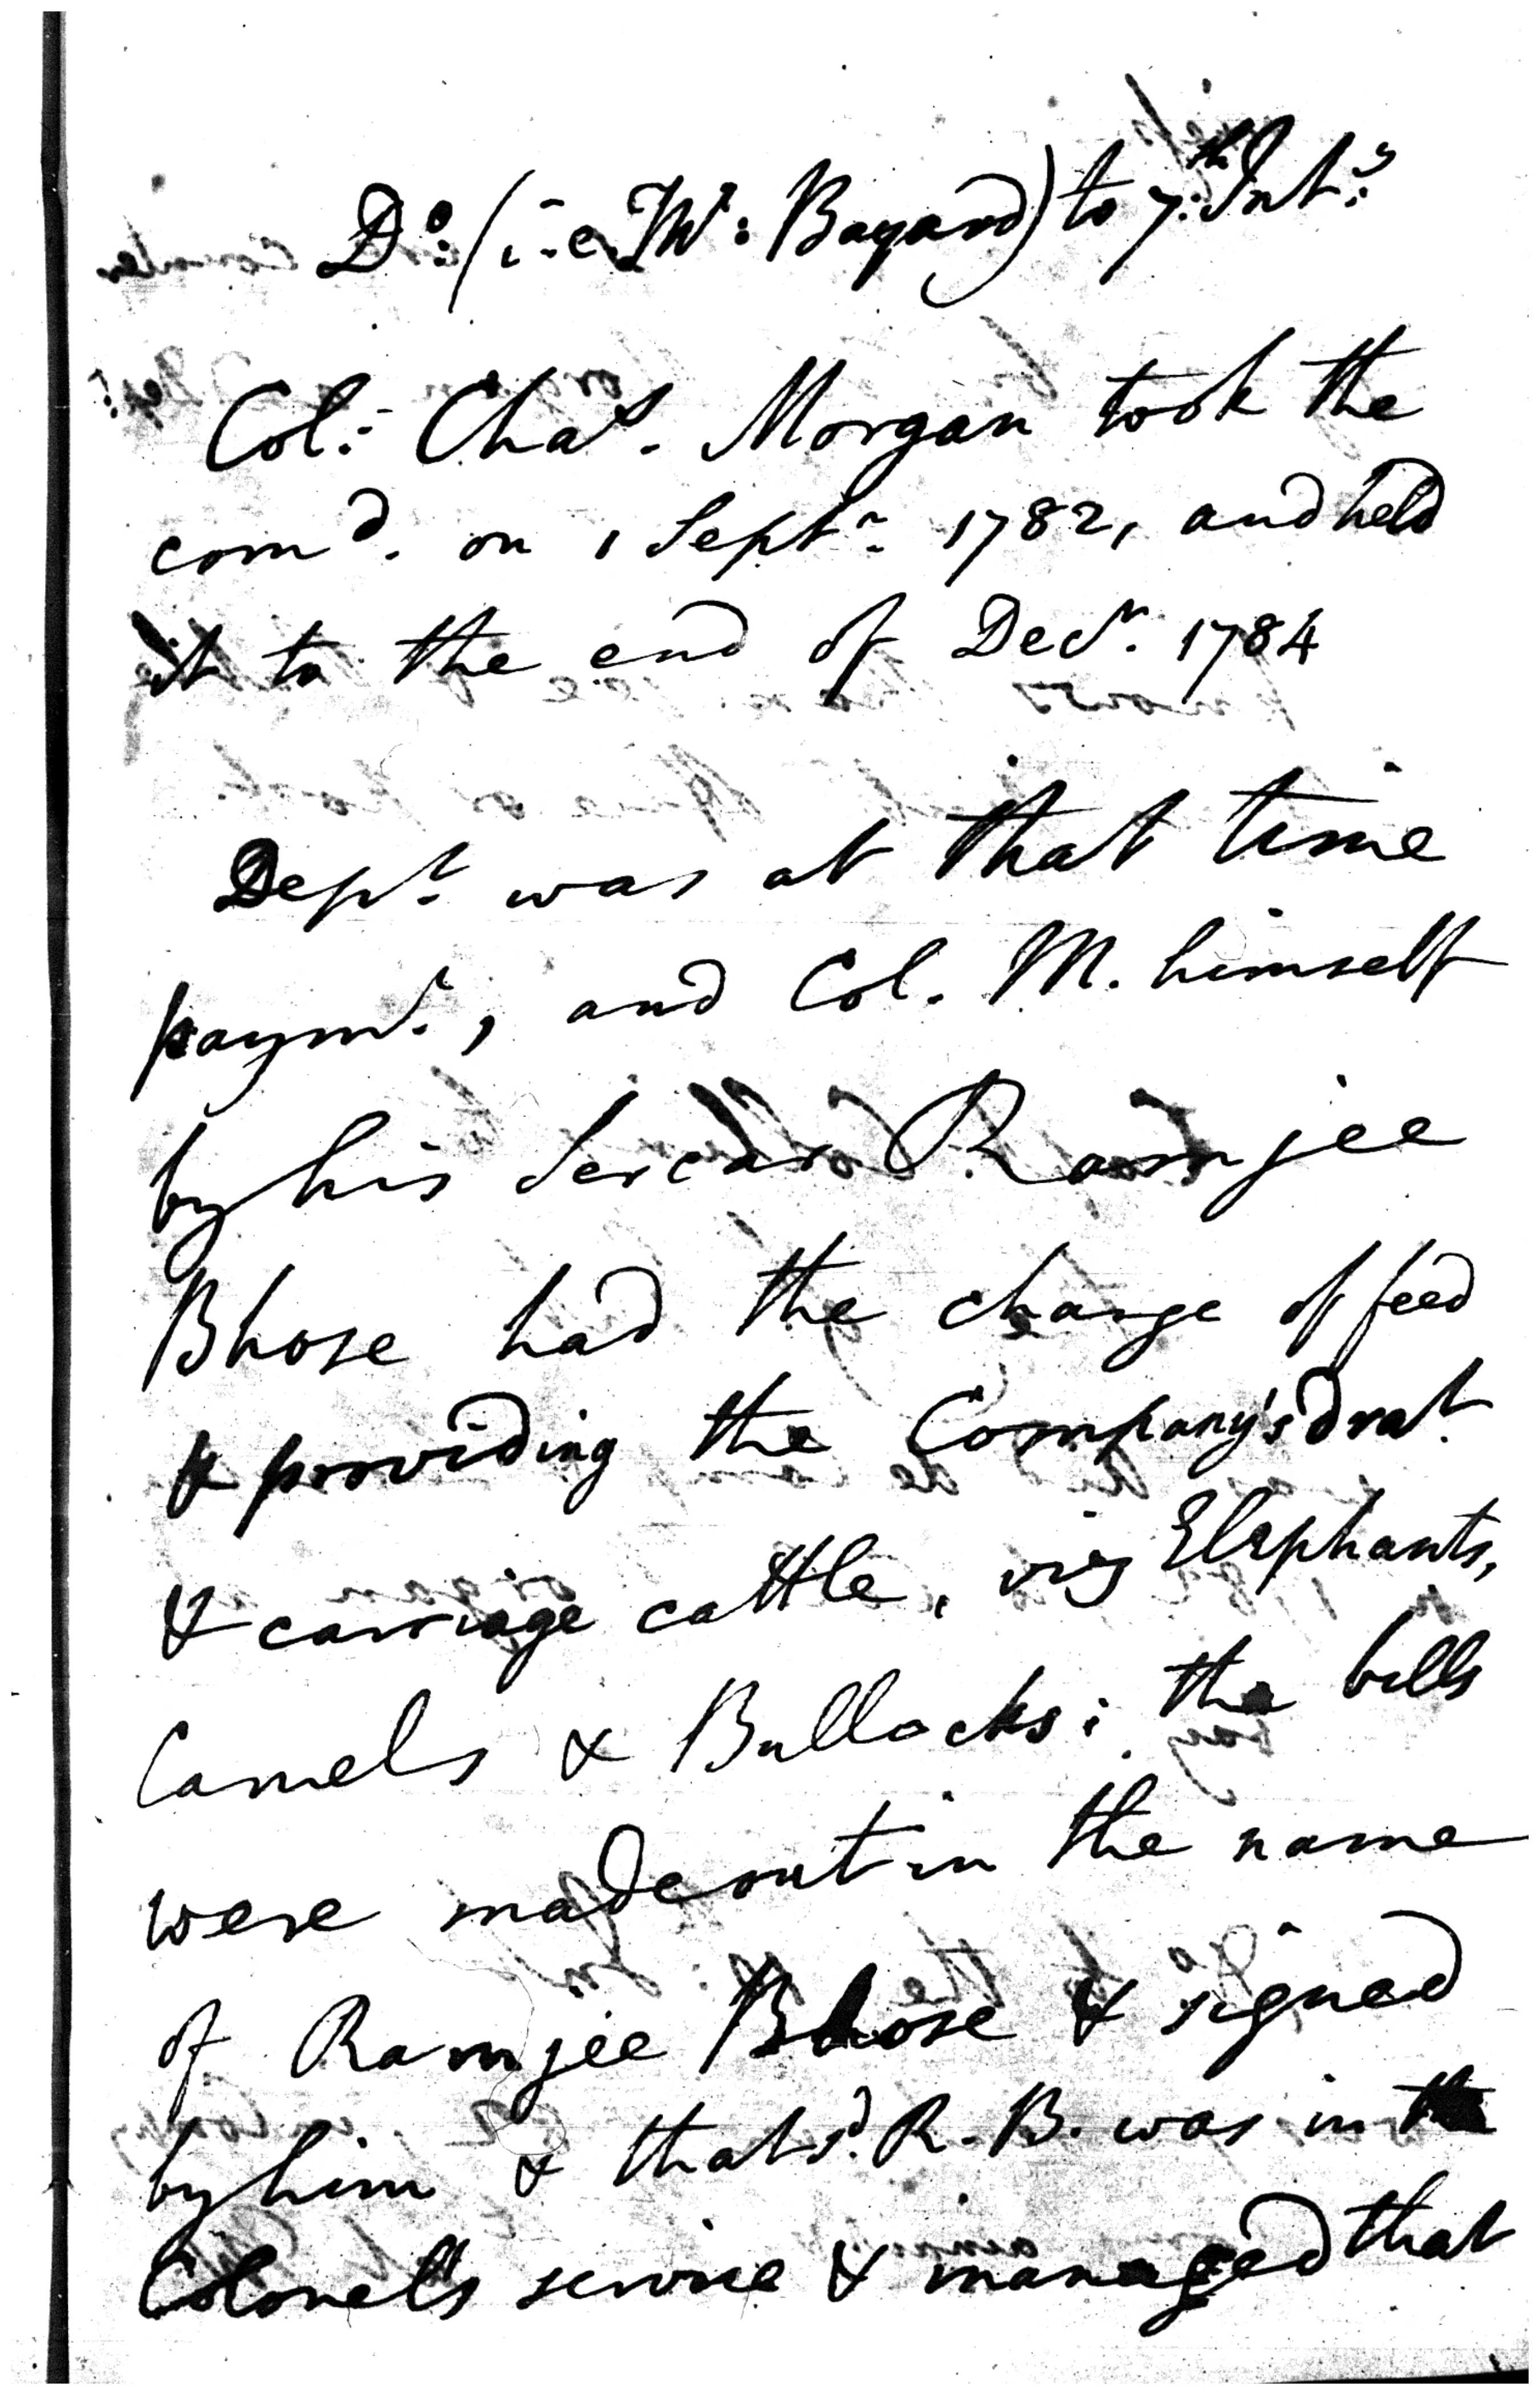 Do. (i.e. Mr. Bayard) to 7th Inty.
Col. Chas. Morgan took the
comd. on 1 Septr. 1782, and held
it to the end of Decr. 1784
Dept. was at that time
paymr., and Col. M. himself
by his Sercar Ramjee
Bhose had the charge of feed
& providing the Company's drat.
& carriage cattle, viz Elephants,
Camels & Bullocks: the bills
were made out in the name
of Ramjee Bhose & signed
by him & that sd. R. B. was in the
Colonel's service & managed that